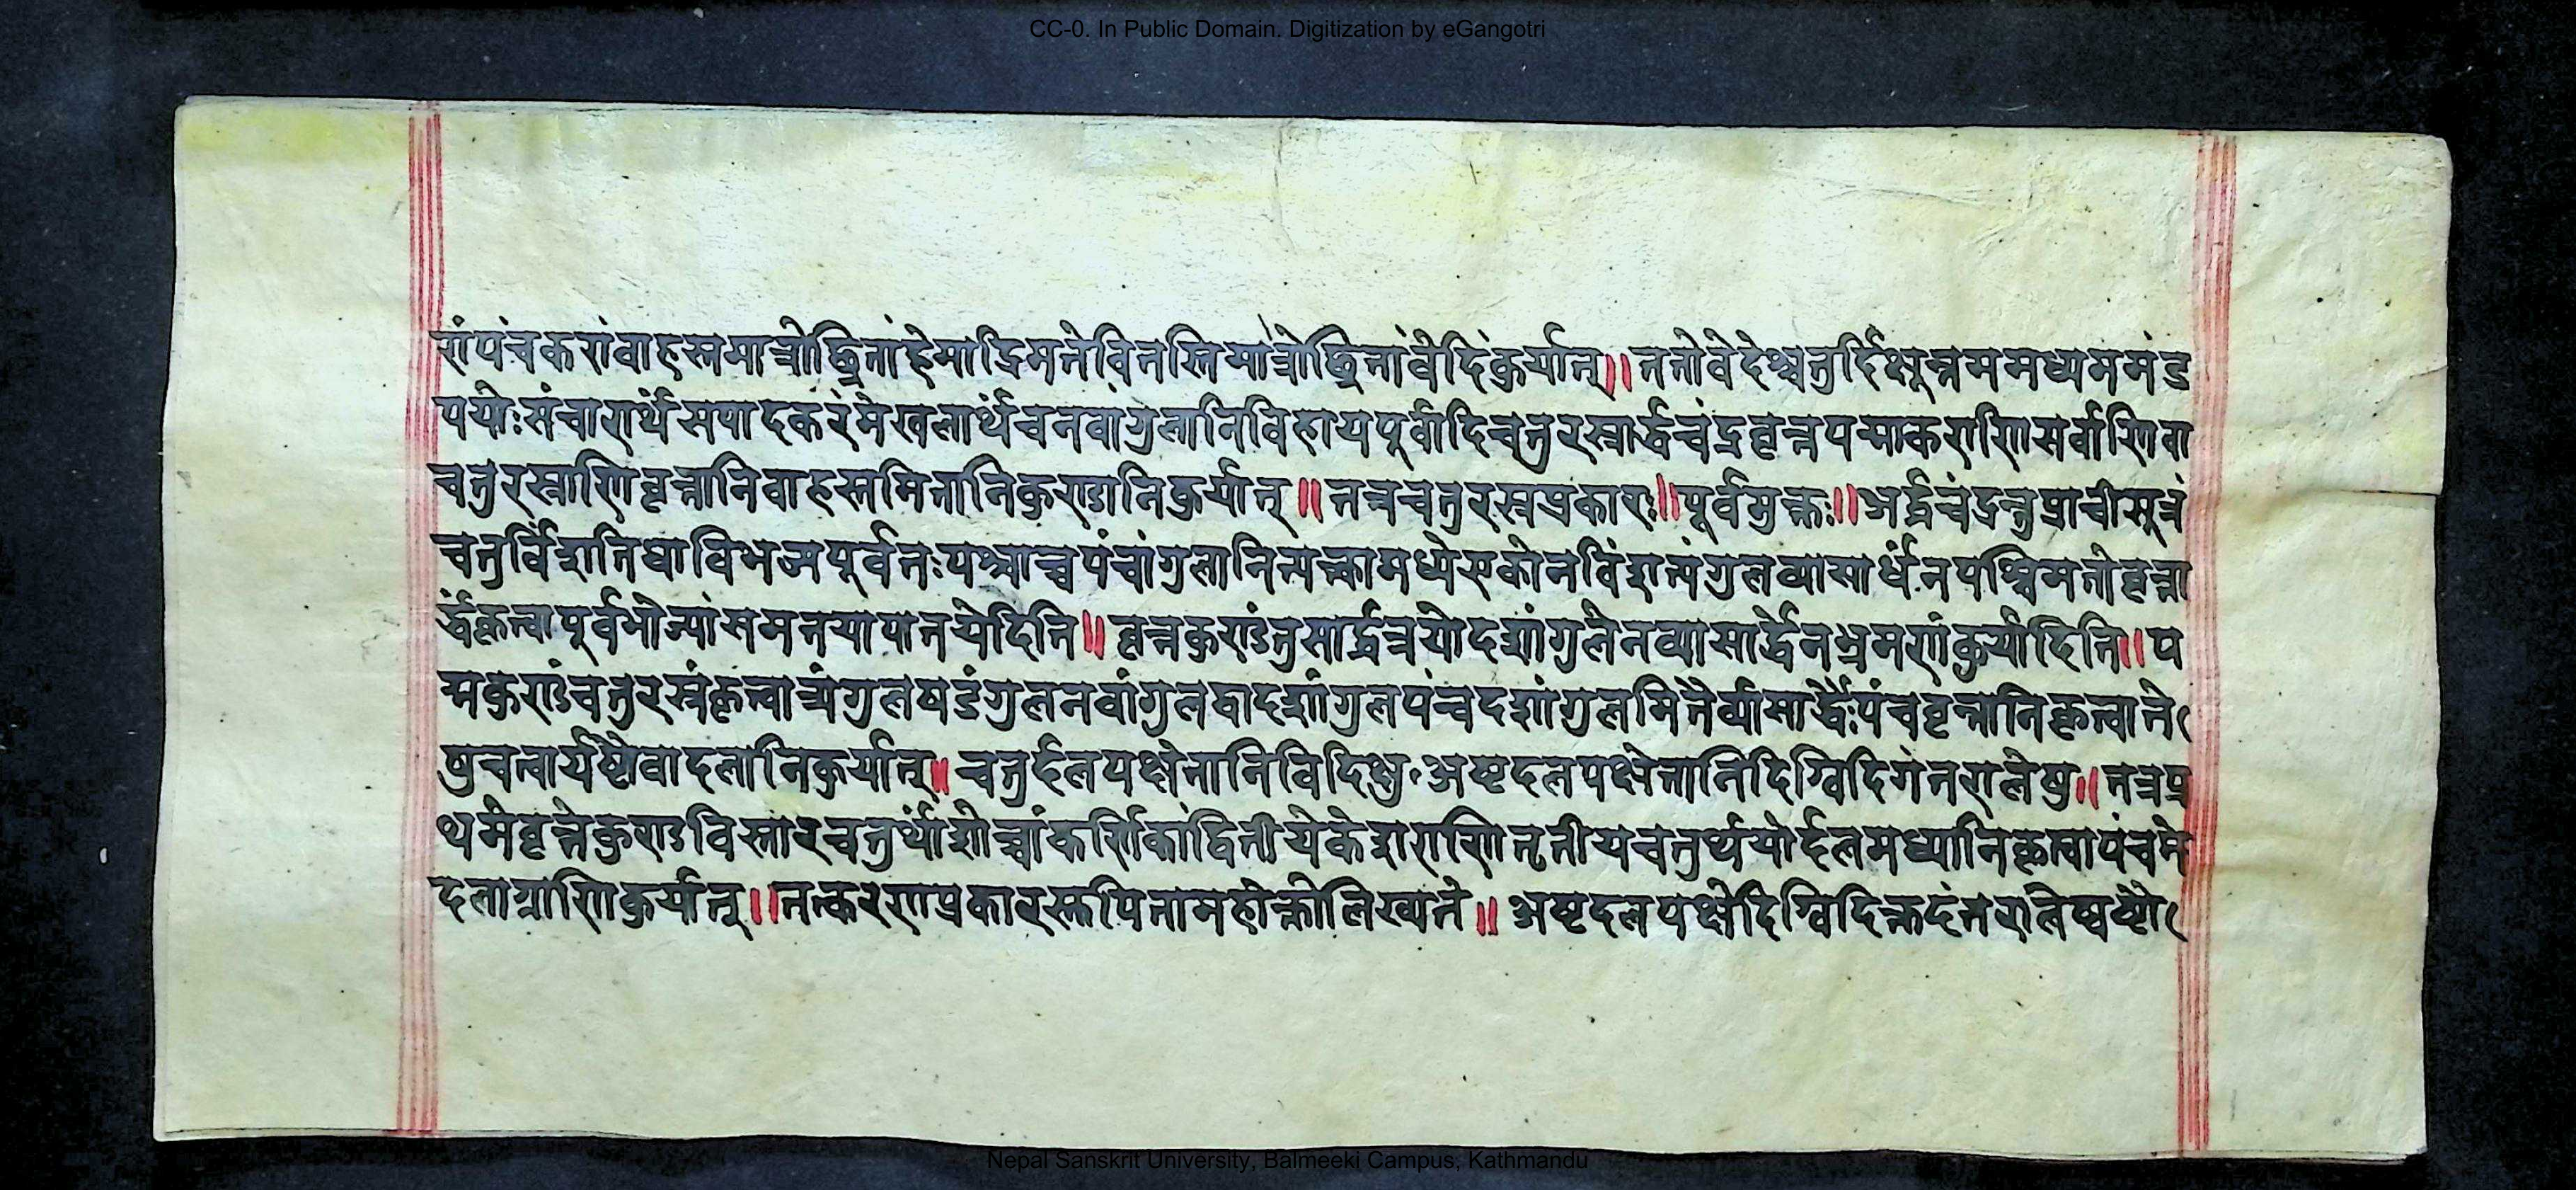 CC-0. In Public Domain. Digitization by eGangotri
रां पंचकरां वा हस्तमात्रोच्छ्रितां हेमाद्रिमते वितस्तिमात्रोच्छ्रितां वेदिं कुर्यात् ॥ ततो वेदेश्चतुर्दिक्षूत्तममध्यममंड
पयोः संचारार्थं सपादकरं मेखलार्थं च नवांगुलानि विहाय पूर्वादि चतुरस्रार्द्धचंद्रवृत्तपद्माकाराणि सर्वाणि वा
चतुरस्राणि वृत्तानि वा हस्तमितानि कुण्डानि कुर्यात् ॥ तत्र चतुरस्रप्रकारः ॥ पूर्वमुक्तः ॥ अर्द्धचंद्रन्तु प्राचीसूत्रं
चतुर्विंशतिधा विभज्य पूर्वतः पश्चाच्च पंचांगुलानि त्यक्त्वा मध्ये एकोनविंशत्यंगुलव्यासार्धेन पश्चिमतो वृत्ता
र्द्धं कृत्वा पूर्वभागे ज्यां समतया पातयेदिति ॥ वृत्तकुण्डं तु सार्द्धत्रयोदशांगुलेन व्यासार्द्धेन भ्रमणं कुर्यादिति ॥ प
द्मकुण्डं चतुरस्रं कृत्वा त्र्यंगुलषडंगुलनवांगुलद्वादशांगुलपंचदशांगुलमितैर्व्यासार्द्धैः पंचवृत्तानि कृत्वा ते
षु चत्वार्यष्टौ वा दलानि कुर्यात् ॥ चतुर्द्दलपक्षे तानि विदिक्षु अष्टदलपक्षे तानि दिग्विदिगंतरालेषु ॥ तत्र प्र
थमे वृत्ते कुण्डविस्तारचतुर्थांशोच्चां कर्णिकां द्वितीये केशराणि तृतीयचतुर्थयोर्द्दलमध्यानि कृत्वा पंचमे
दलाग्राणि कुर्यात् ॥ तत्करणप्रकारस्तु पितामहोक्तो लिख्यते ॥ अष्टदलपक्षे
Nepal Sanskrit University, Balmeeki Campus, Kathmandu